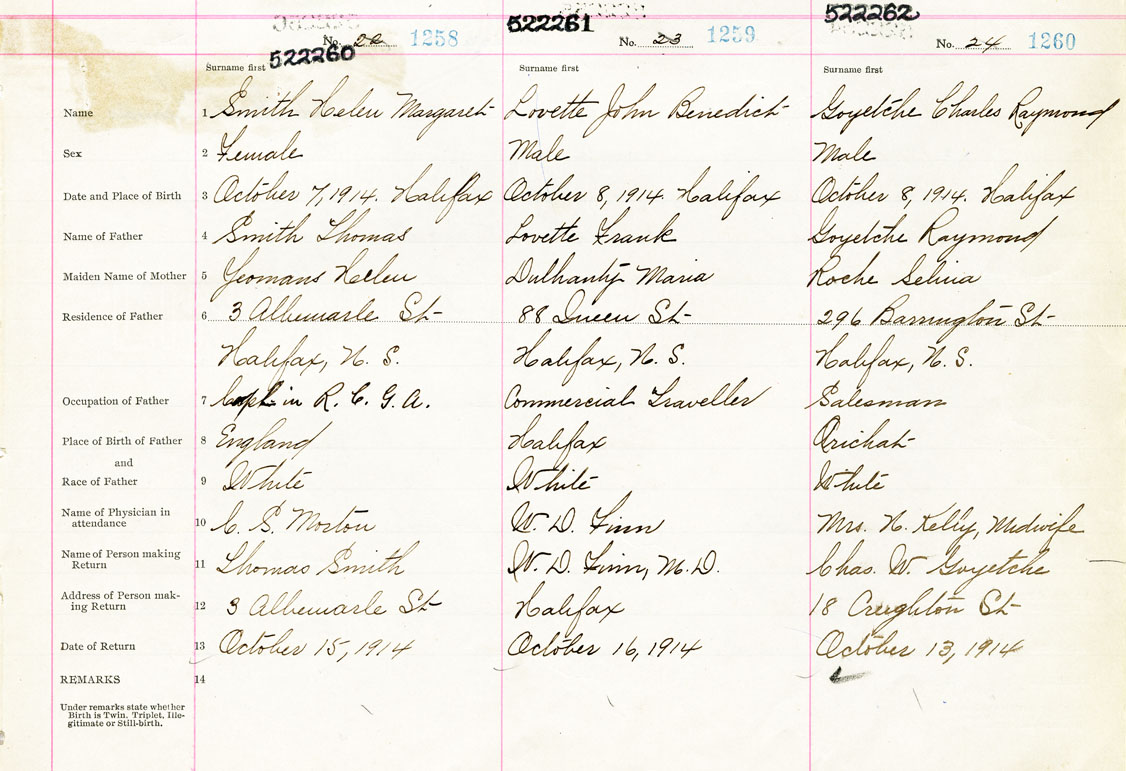 522260 522261 522262
No. 22 1258 No. 23 1259 No. 24 1260
Surname first Surname first Surname first
Name 1 Smith Helen Margaret Lovette John Benedict Goyetche Charles Raymond
Sex 2 Female Male Male
Date and Place of Birth 3 October 7, 1914. Halifax October 8, 1914. Halifax October 8, 1914. Halifax
Name of Father 4 Smith Thomas Lovette Frank Goyetche Raymond
Maiden Name of Mother 5 Yeomans Helen Dulhanty Maria Roche Selina
Residence of Father 6 3 Albemarle St 88 Queen St 296 Barrington St
Halifax, N. S. Halifax, N. S. Halifax, N. S.
Occupation of Father 7 in R. C. G. A. Commercial Traveller Salesman
Place of Birth of Father 8 England Halifax Arichat
and
Race of Father 9 White White White
Name of Physician in
attendance 10 C. S. Morton W. D. Finn Mrs. N. Kelly, Midwife
Name of Person making
Return 11 Thomas Smith W. D. Finn, M.D. Chas. W. Goyetche
Address of Person mak-
ing Return 12 3 Albemarle St Halifax 18 Creighton St
Date of Return 13 October 15, 1914 October 16, 1914 October 13, 1914
REMARKS 14
Under remarks state whether
Birth is Twin, Triplet, Ille-
gitimate or Still-birth.